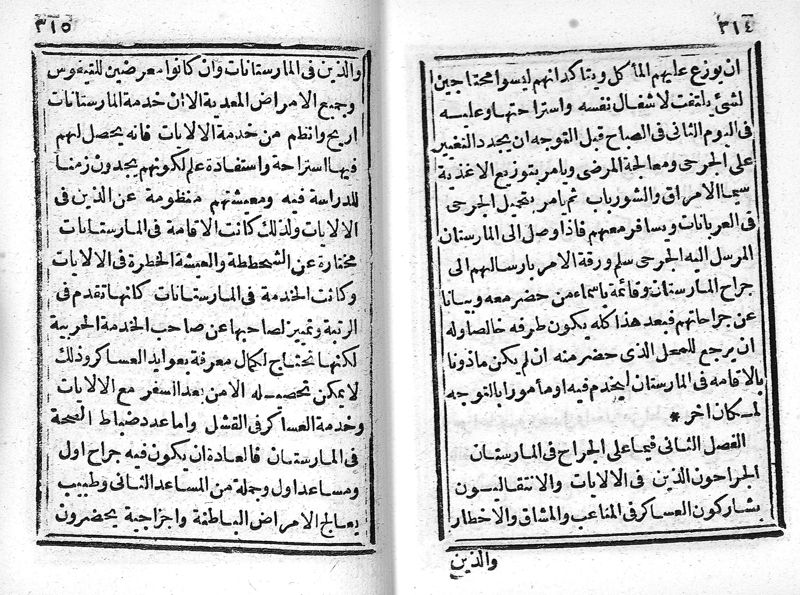 ٣١٤
ان يوزع عليهم المأكل ويتأكد انهم ليسوا محتاجين
لشئ يلتفت لاشغال نفسه واستراحتها وعليه
فى اليوم الثانى فى الصباح قبل التوجه ان يجدد التغيير
على الجرحى ومعالجة المرضى ويامر بتوزيع الاغذية
سيما الامراق والشورباب ثم يامر بتحميل الجرحى
فى العربانات ويسافر معهم فاذا وصل الى المارستان
المرسل اليه الجرحى سلم ورقة الامر بارسالهم الى
جراح المارستان وقائمة باسماء من حضر معه وبيانا
عن جراحاتهم فبعد هذا كله يكون طرفه خالصا وله
ان يرجع للمحل الذى حضر منه ان لم يكن ماذونا
بالاقامه فى المارستان ليخدم فيه او مأمورا بالتوجه
لمكان اخر *
الفصل الثانى فيما على الجراح فى المارستان
الجراحون الذين فى الالايات والانتقاليون
يشاركون العساكر فى المتاعب والمشاق والاخطار
والذين
٣١٥
والذين فى المارستانات وان كانوا معرضين للتيفوس
وجميع الامراض المعدية الا ان خدمة المارستانات
اريح وانظم من خدمة الالايات فانه يحصل لهم
فيها استراحة واستفادة علم لكونهم يجدون زمنا
للدراسة فيه ومعيشتهم منظومة عن الذين فى
الالايات ولذلك كانت الاقامة فى المارستانات
مختارة عن الشحططة والعيشة الخطرة فى الالايات
وكانت الخدمة فى المارستانات كانها تقدم فى
الرتبة وتمييز لصاحبها عن صاحب الخدمة الحربية
لكنها تحتاج لكمال معرفة بعوايد العساكر وذلك
لا يمكن تحصيله الا من بعد السفر مع الالايات
وخدمة العساكر فى القشل واما عدد ضباط الصحة
فى المارستان فالعادة ان يكون فيه جراح اول
ومساعد اول وجملة من المساعد الثانى وطبيب
يعالج الامراض الباطنة واجزاجية يحضرون